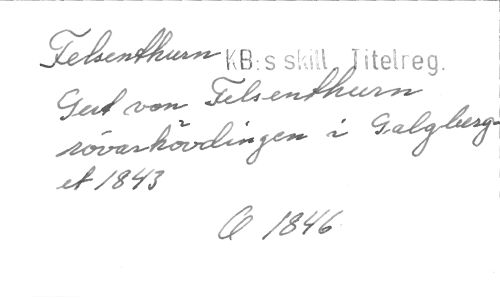 Felsenthurn KB:s skill. Titelreg.
Gert von Felsenthurn
rövarhövdingen i Galgberg-
et 1843
Q 1846